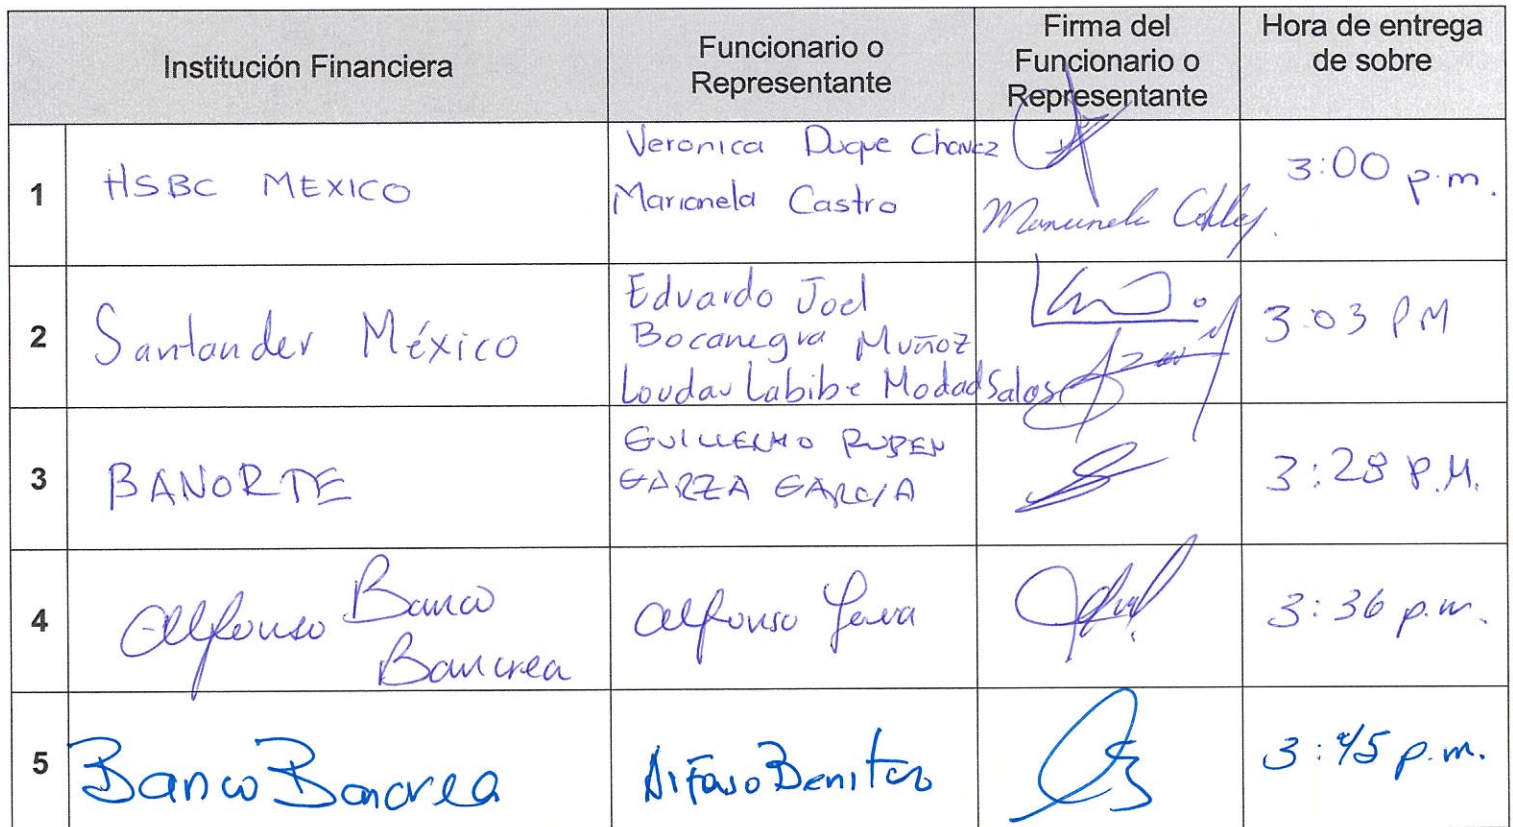 Institución Financiera
Funcionario o
Representante
Firma del
Funcionario o
Representante
Hora de entrega
de sobre
1
HSBC MEXICO
Veronica Duque Chavez
Marianela Castro
3:00 p.m.
2
Santander México
Eduardo Joel
Bocanegra Muñoz
Loudav Labibe Modad Salas
3:03 PM
3
BANORTE
GUILLERMO RUBEN
GARZA GARCIA
3:28 P.M.
4
Alfonso Banco
Bancrea
Alfonso
3:36 p.m.
5
Banco Bancrea
3:45 p.m.